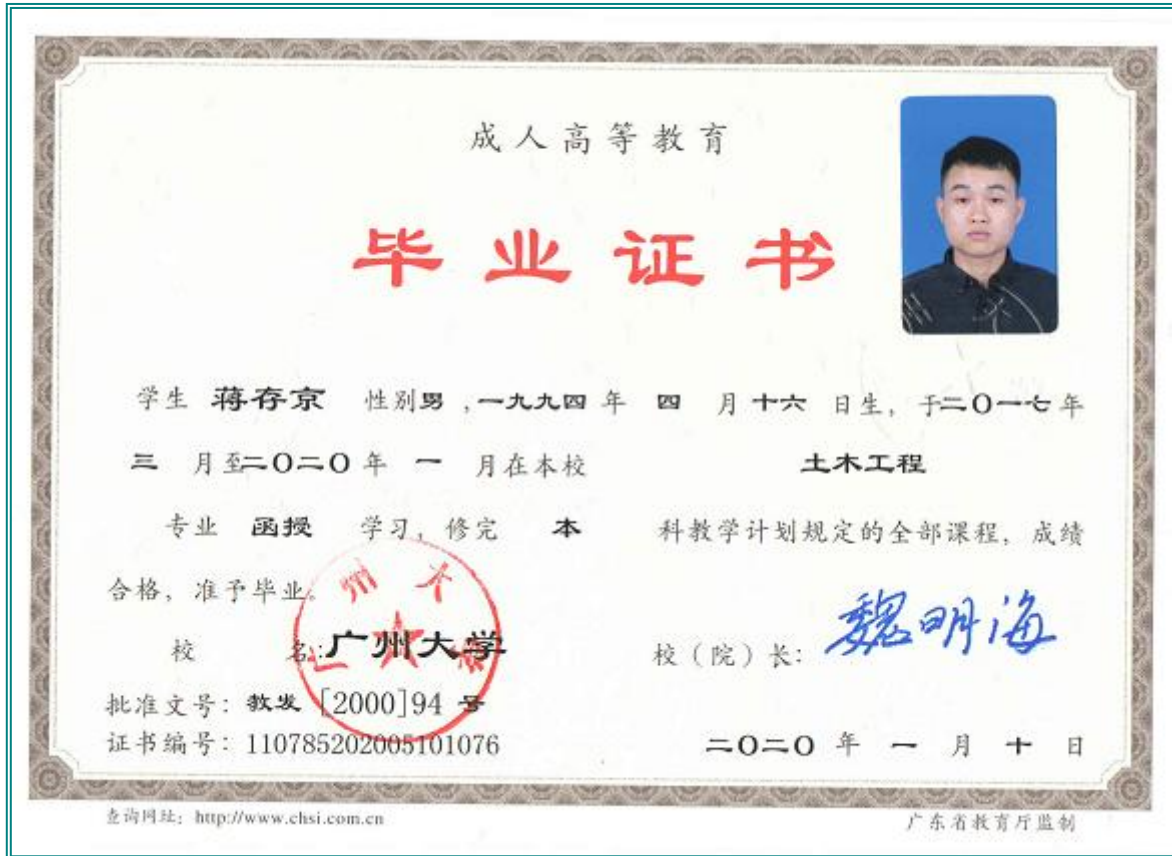 成人高等教育
毕业证书
学生 蒋存京 性别男，一九九四年 四 月十六 日生，于二O一七年
三 月至二O二O年 一 月在本校 土木工程
专业 函授 学习，修完 本 科教学计划规定的全部课程，成绩
合格，准予毕业。
广州大学
校 名：广州大学 校（院）长：魏明海
批准文号：教发［2000]94 号
证书编号：110785202005101076 二O二O 年 一 月 十 日
查询网址：http://www.chsi.com.cn 广东省教育厅监制